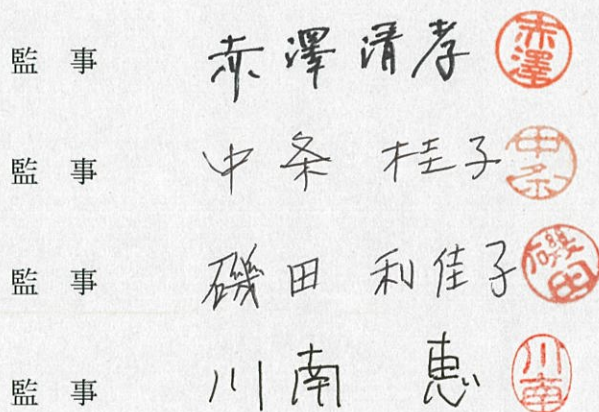 監事 赤澤清孝 赤澤
監事 中条 桂子 中条
監事 磯田 利佳子 磯田
監事 川南 恵 川南